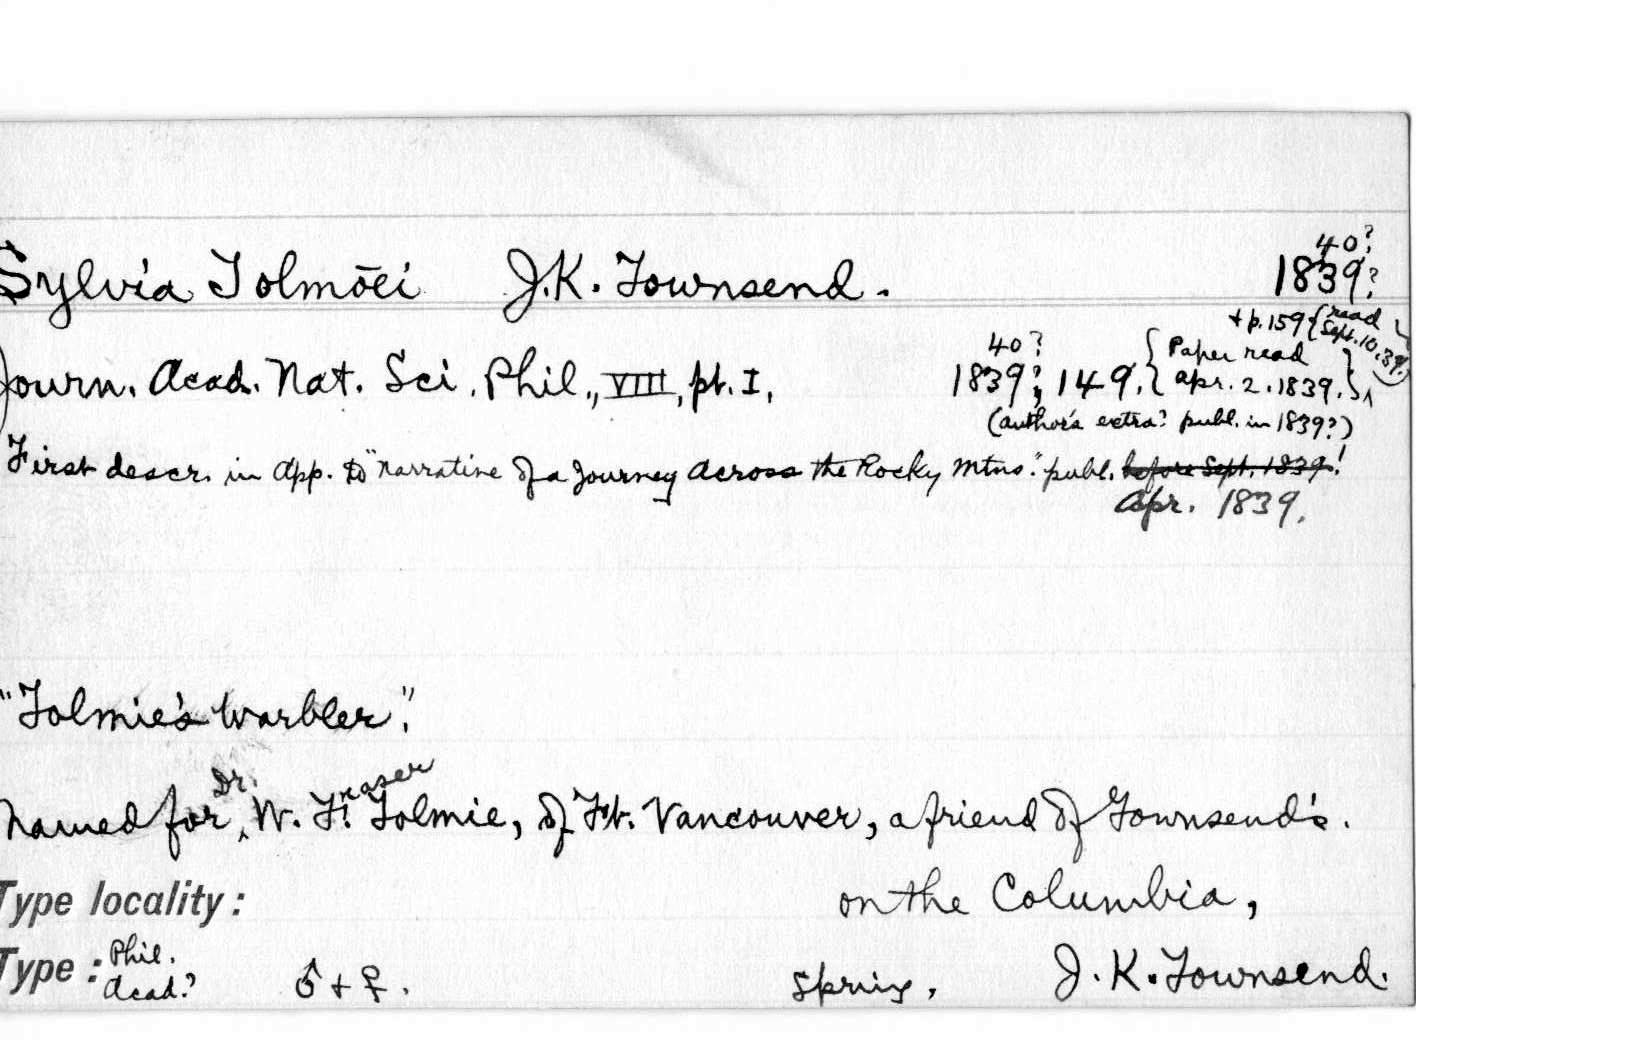 40?
Sylvia Tolmōei J.K. Townsend. 1839?
+ p. 159 {read Sept. 10. 39.}
40?
Journ. Acad. Nat. Sci. Phil., VIII, pt. I, 1839?; 149. {Paper read Apr. 2. 1839.}
(author's extra? publ. in 1839?)
First descr. in App. to "Narrative of a Journey Across the Rocky Mtns." publ. before Sept. 1839!
Apr. 1839.
"Tolmie's Warbler".
Named for Dr. W. Fraser Tolmie, of Ft. Vancouver, a friend of Townsend's.
Type locality: on the Columbia,
Type: Phil. Acad.? ♂ + ♀. Spring, J. K. Townsend.